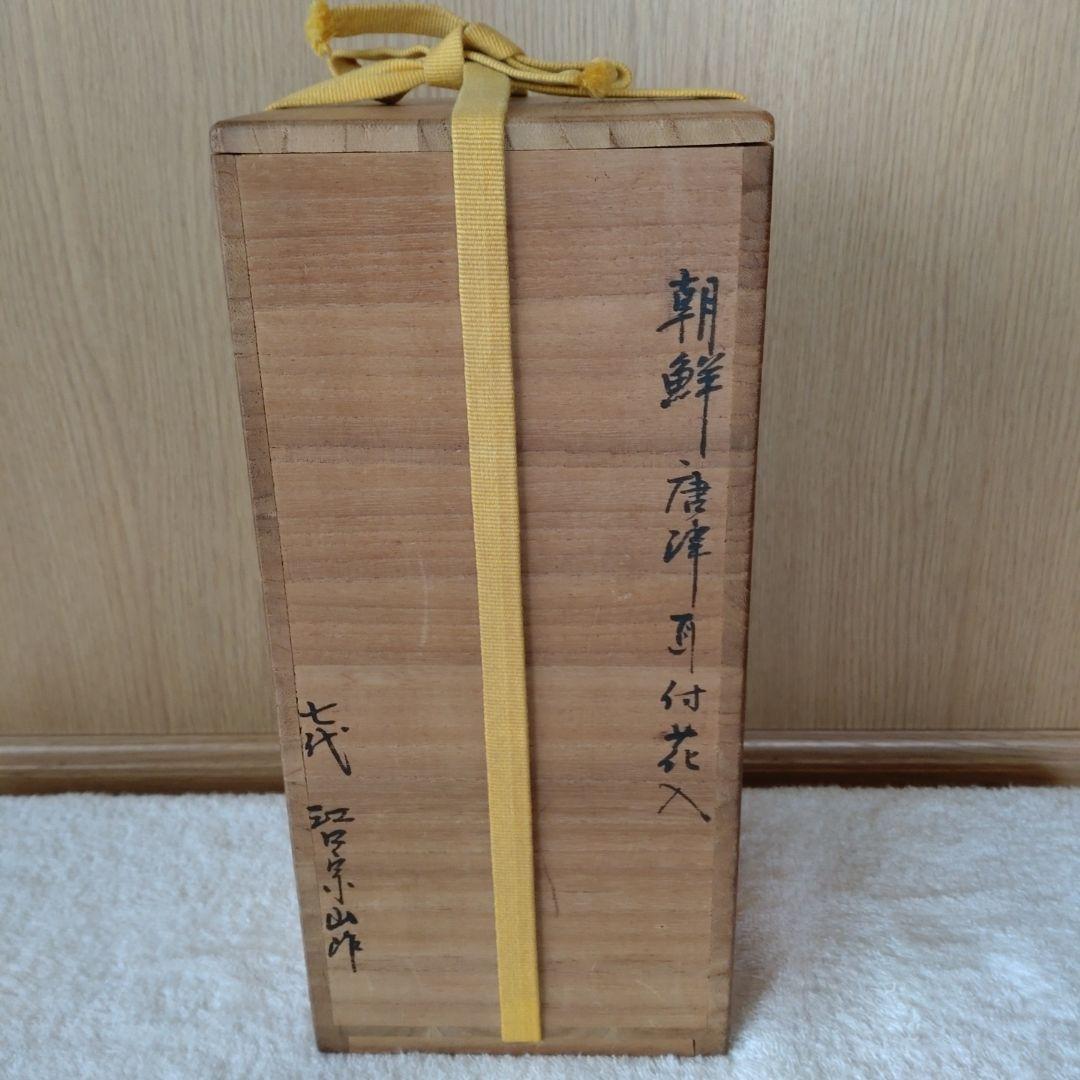 朝鮮唐津耳付花入
七代 江口宗山作